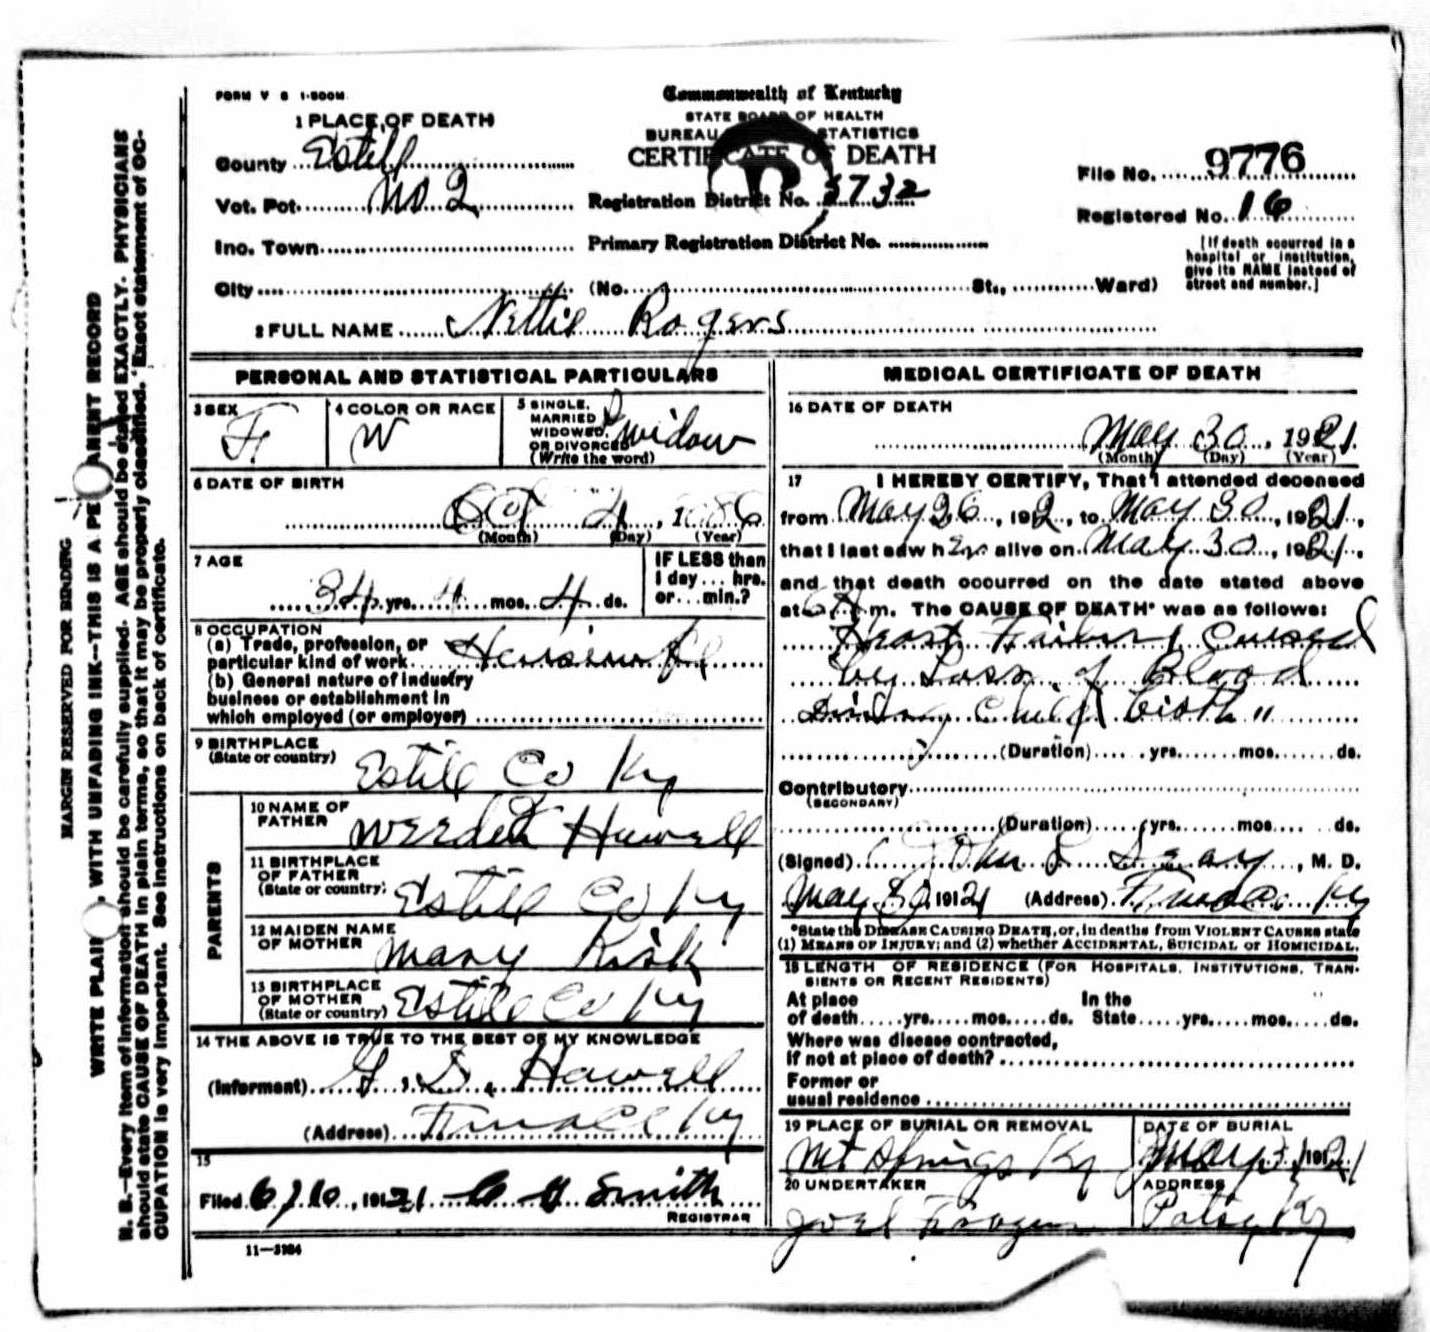 FORM V S 1-500M
Commonwealth of Kentucky
STATE BOARD OF HEALTH
BUREAU STATISTICS
CERTIFICATE OF DEATH
1 PLACE OF DEATH
County Estill
Vot. Pct. No 2
Inc. Town
City (No. St., Ward)
Registration District No. 3732
Primary Registration District No.
File No. 9776
Registered No. 16
[If death occurred in a
hospital or institution,
give its NAME instead of
street and number.]
2 FULL NAME Nettie Rogers
PERSONAL AND STATISTICAL PARTICULARS
3 SEX F
4 COLOR OR RACE W
5 SINGLE,
MARRIED
WIDOWED,
OR DIVORCED
(Write the word)
widow
6 DATE OF BIRTH
Oct 4, 1886
(Month) (Day) (Year)
7 AGE
34 yrs. 4 mos. 4 ds.
IF LESS than
1 day... hrs.
or... min.?
8 OCCUPATION
(a) Trade, profession, or
particular kind of work
(b) General nature of industry
business or establishment in
which employed (or employer)
9 BIRTHPLACE
(State or country) Estill Co Ky
PARENTS
10 NAME OF
FATHER Howell
11 BIRTHPLACE
OF FATHER
(State or country) Estill Co Ky
12 MAIDEN NAME
OF MOTHER Mary Risk
13 BIRTHPLACE
OF MOTHER
(State or country) Estill Co Ky
14 THE ABOVE IS TRUE TO THE BEST OF MY KNOWLEDGE
(Informant) G. D. Howell
(Address) Ky
15
Filed 6/10, 1921 Smith
REGISTRAR
11—3184
MEDICAL CERTIFICATE OF DEATH
16 DATE OF DEATH
May 30, 1921
(Month) (Day) (Year)
17 I HEREBY CERTIFY, That I attended deceased
from May 26, 192, to May 30, 1921,
that I last saw her alive on May 30, 1921,
and that death occurred on the date stated above
at 6 A m. The CAUSE OF DEATH* was as follows:
Heart Failure Caused
by Loss of Blood
During Child birth "
(Duration) yrs. mos. ds.
Contributory
(SECONDARY)
(Duration) yrs. mos. ds.
(Signed) John, M. D.
May 30, 1921 (Address) Ky
*State the DISEASE CAUSING DEATH, or, in deaths from VIOLENT CAUSES state
(1) MEANS OF INJURY; and (2) whether ACCIDENTAL, SUICIDAL or HOMICIDAL.
18 LENGTH OF RESIDENCE (FOR HOSPITALS, INSTITUTIONS, TRAN-
SIENTS OR RECENT RESIDENTS)
At place
of death yrs. mos. ds.
In the
State yrs. mos. ds.
Where was disease contracted,
if not at place of death?
Former or
usual residence
19 PLACE OF BURIAL OR REMOVAL
Mt Springs Ky
DATE OF BURIAL
May 31, 1921
20 UNDERTAKER
Joel
ADDRESS
Patsy Ky
MARGIN RESERVED FOR BINDING
WRITE PLAINLY, WITH UNFADING INK—THIS IS A PERMANENT RECORD
N. B.—Every item of information should be carefully supplied. AGE should be stated EXACTLY. PHYSICIANS
should state CAUSE OF DEATH in plain terms, so that it may be properly classified. Exact statement of OC-
CUPATION is very important. See instructions on back of certificate.